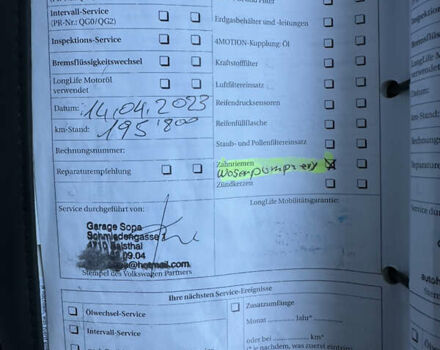 Intervall-Service
(PR-Nr.: QG0/QG2)
Inspektions-Service
Bremsflüssigkeitswechsel
LongLife Motoröl
verwendet
Datum: 14.04.2023
km-Stand: 195'800
Rechnungsnummer:
Reparaturempfehlung
Service durchgeführt von:
Garage Sopa
Schmiedengasse
4710 Balsthal
09.04
@hotmail.com
Stempel des Volkswagen Partners
Erdgasbehälter und -leitungen
4MOTION-Kupplung-Öl
Kraftstofffilter
Luftfiltereinsatz
Reifendrucksensoren
Reifenfüllflasche
Staub- und Pollenfiltereinsatz
Zahnriemen
Zündkerzen
LongLife Mobilitätsgarantie:
Ihre nächsten Service-Ereignisse
Ölwechsel-Service
Intervall-Service
Zusatzumfänge
Monat Jahr*
oder bei km*